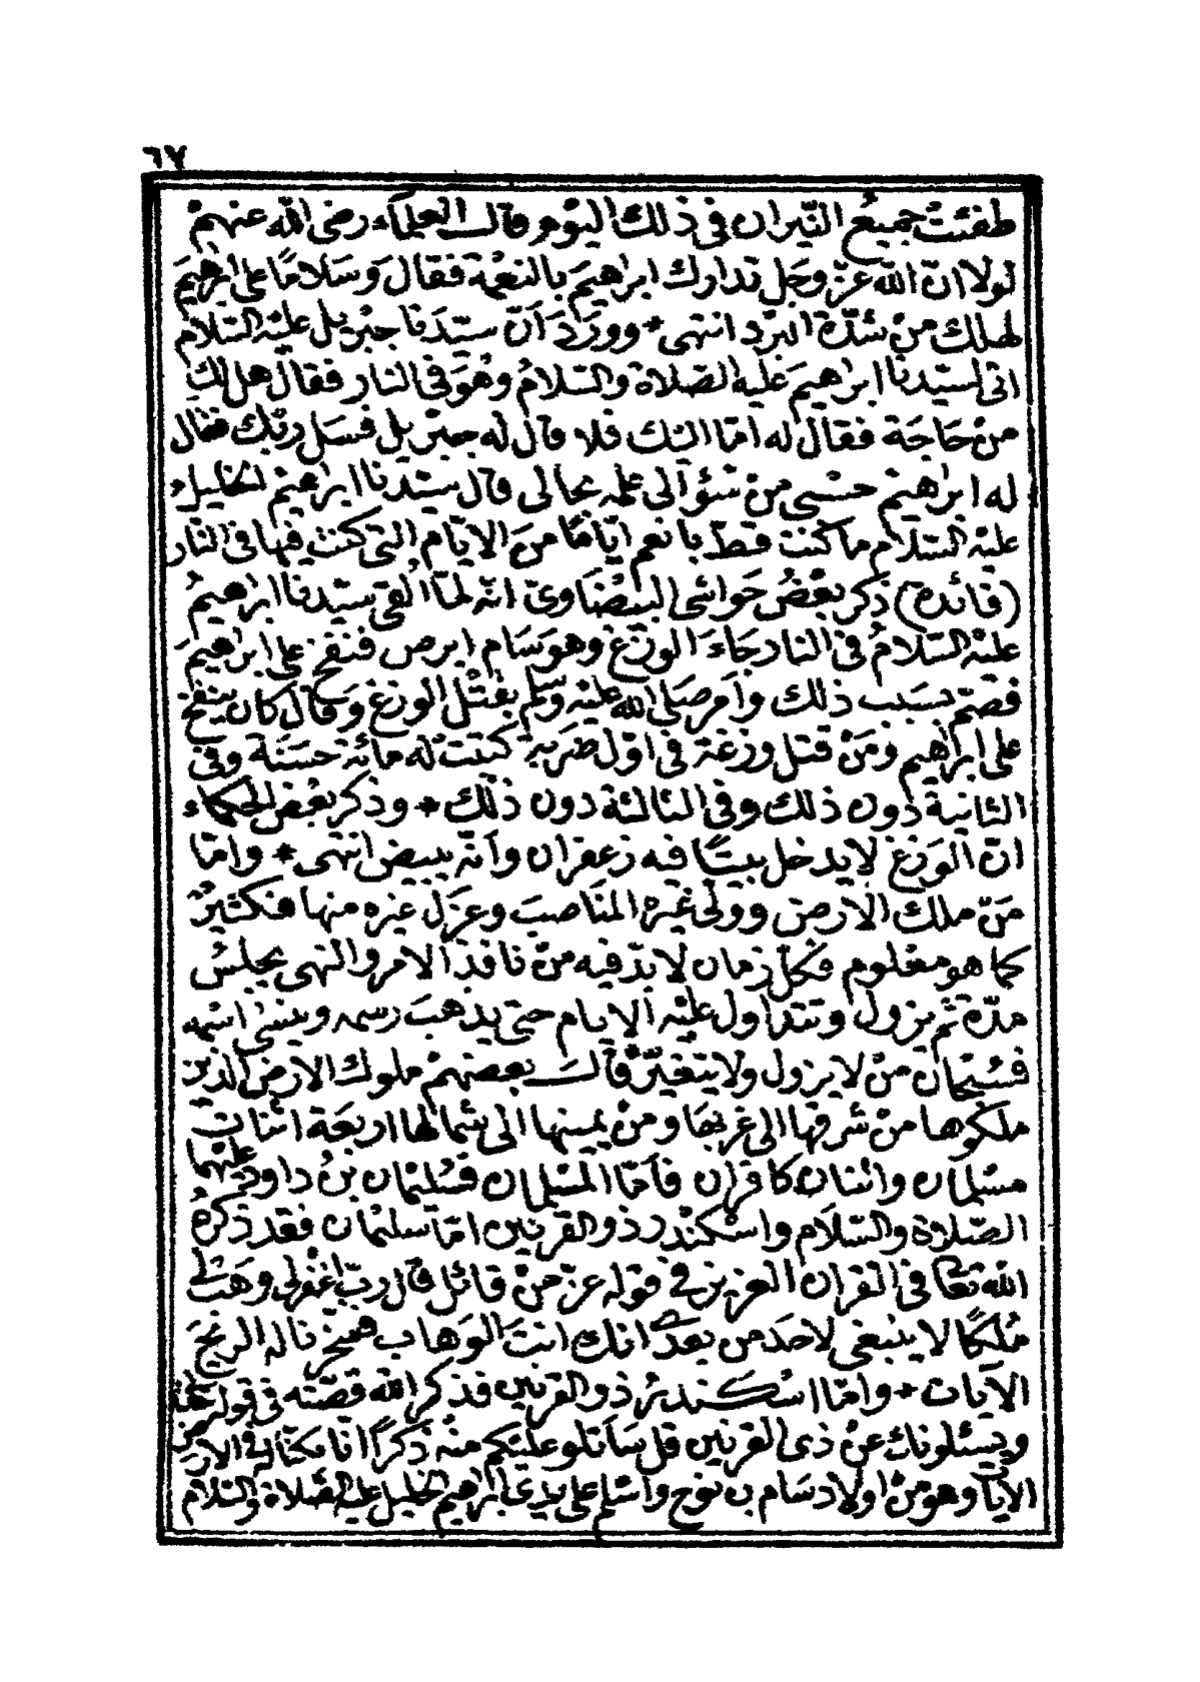 ٦٧
طفئت جميع النيران في ذلك اليوم قال العلماء رضى الله عنهم
لولا ان الله عز وجل تدارك ابراهيم بالنعمة فقال وسلاما على ابراهيم
لهلك من شدة البرد انتهى * وورد ان سيدنا جبريل عليه السلام
اتى لسيدنا ابراهيم عليه الصلاة والسلام وهو في النار فقال هل لك
من حاجة فقال له اما اليك فلا قال له جبريل فسل ربك فقال
له ابراهيم حسبى من سؤالى علمه بحالى قال سيدنا ابراهيم الخليل
عليه السلام ما كنت قط بانعم اياما من الايام التى كنت فيها في النار
(فائده) ذكر بعض حواشى البيضاوى انه لما القى سيدنا ابراهيم
عليه السلام في النار جاء الوزغ وهو سام ابرص فنفخ على ابراهيم
فصم بسبب ذلك وامر صلى الله عليه وسلم بقتل الوزغ وقال كان ينفخ
على ابراهيم ومن قتل وزغة في اول ضربة كتبت له مائة حسنة وفى
الثانية دون ذلك وفى الثالثة دون ذلك * وذكر بعض الحكماء
ان الوزغ لا يدخل بيتا فيه زعفران وانه يبيض انتهى * واما
من ملك الارض وولى غيره المناصب وعزل غيره منها فكثير
كما هو معلوم فكل زمان لابد فيه من نافذ الامر والنهى يجلس
مدة ثم يزول وتتداول عليه الايام حتى يذهب رسمه وينسى اسمه
فسبحان من لا يزول ولا يتغير قال بعضهم ملوك الارض الذين
ملكوها من شرقها الى غربها ومن يمينها الى شمالها اربعة اثنان
مسلمان واثنان كافران فاما المسلمان فسليمان بن داود عليهما
الصلاة والسلام واسكندر ذو القرنين اما سليمان فقد ذكره
الله تعالى في القران العزيز في قوله عز من قائل قال رب اغفرلى وهب لى
ملكا لا ينبغى لاحد من بعدى انك انت الوهاب فسخرنا له الريح
الآيات * واما اسكندر ذو القرنين فذكر الله قصته في قوله تعالى
ويسئلونك عن ذى القرنين قل سأتلو عليكم منه ذكرا انا مكنا له في الارض
الآيات وهو من اولاد سام بن نوح واسلم على يدى ابراهيم الخليل عليه الصلاة والسلام